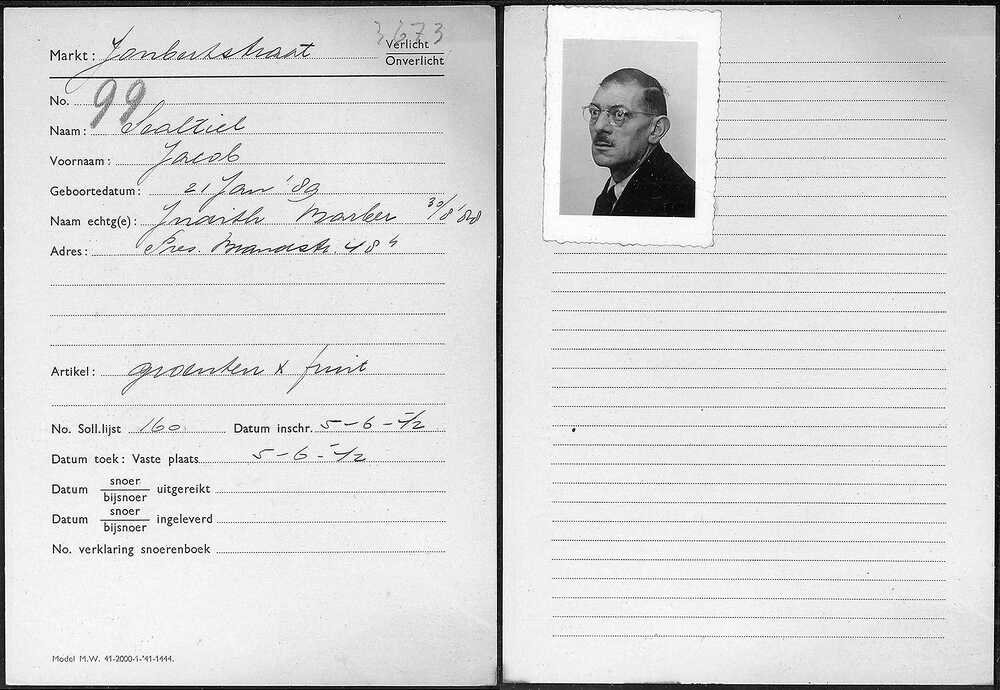 3673
Markt: Joubertstraat Verlicht
Onverlicht
No. 99
Naam: Sealtiel
Voornaam: Jacob
Geboortedatum: 21 Jan '89
Naam echtg(e): Judith Barber 30/8 '88
Adres: Pres. Brandstr. 48 h
Artikel: groenten & fruit
No. Soll.lijst 160 Datum inschr. 5-6-'42
Datum toek: Vaste plaats 5-6-'42
Datum snoer/bijsnoer uitgereikt
Datum snoer/bijsnoer ingeleverd
No. verklaring snoerenboek
Model M.W. 41-2000-1-'41-1444.